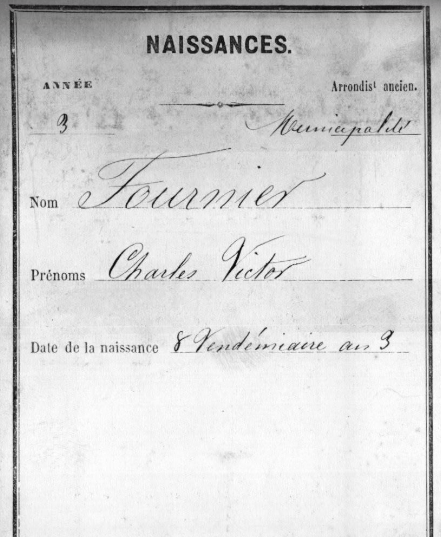 NAISSANCES.
ANNÉE
Arrondist ancien.
3
Municipalité
Nom Fournier
Prénoms Charles Victor
Date de la naissance 8 Vendémiaire an 3